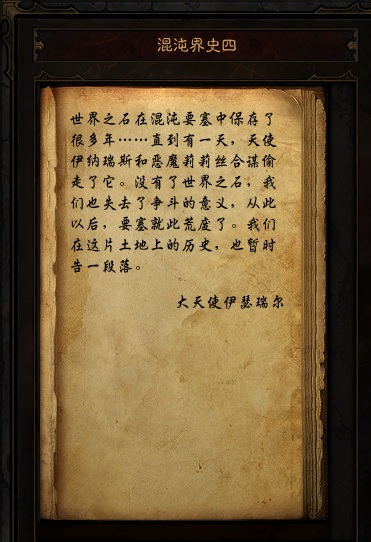 混沌界史四
世界之石在混沌要塞中保存了
很多年……直到有一天，天使
伊纳瑞斯和恶魔莉莉丝合谋偷
走了它。没有了世界之石，我
们也失去了争斗的意义，从此
以后，要塞就此荒废了。我们
在这片土地上的历史，也暂时
告一段落。
大天使伊瑟瑞尔